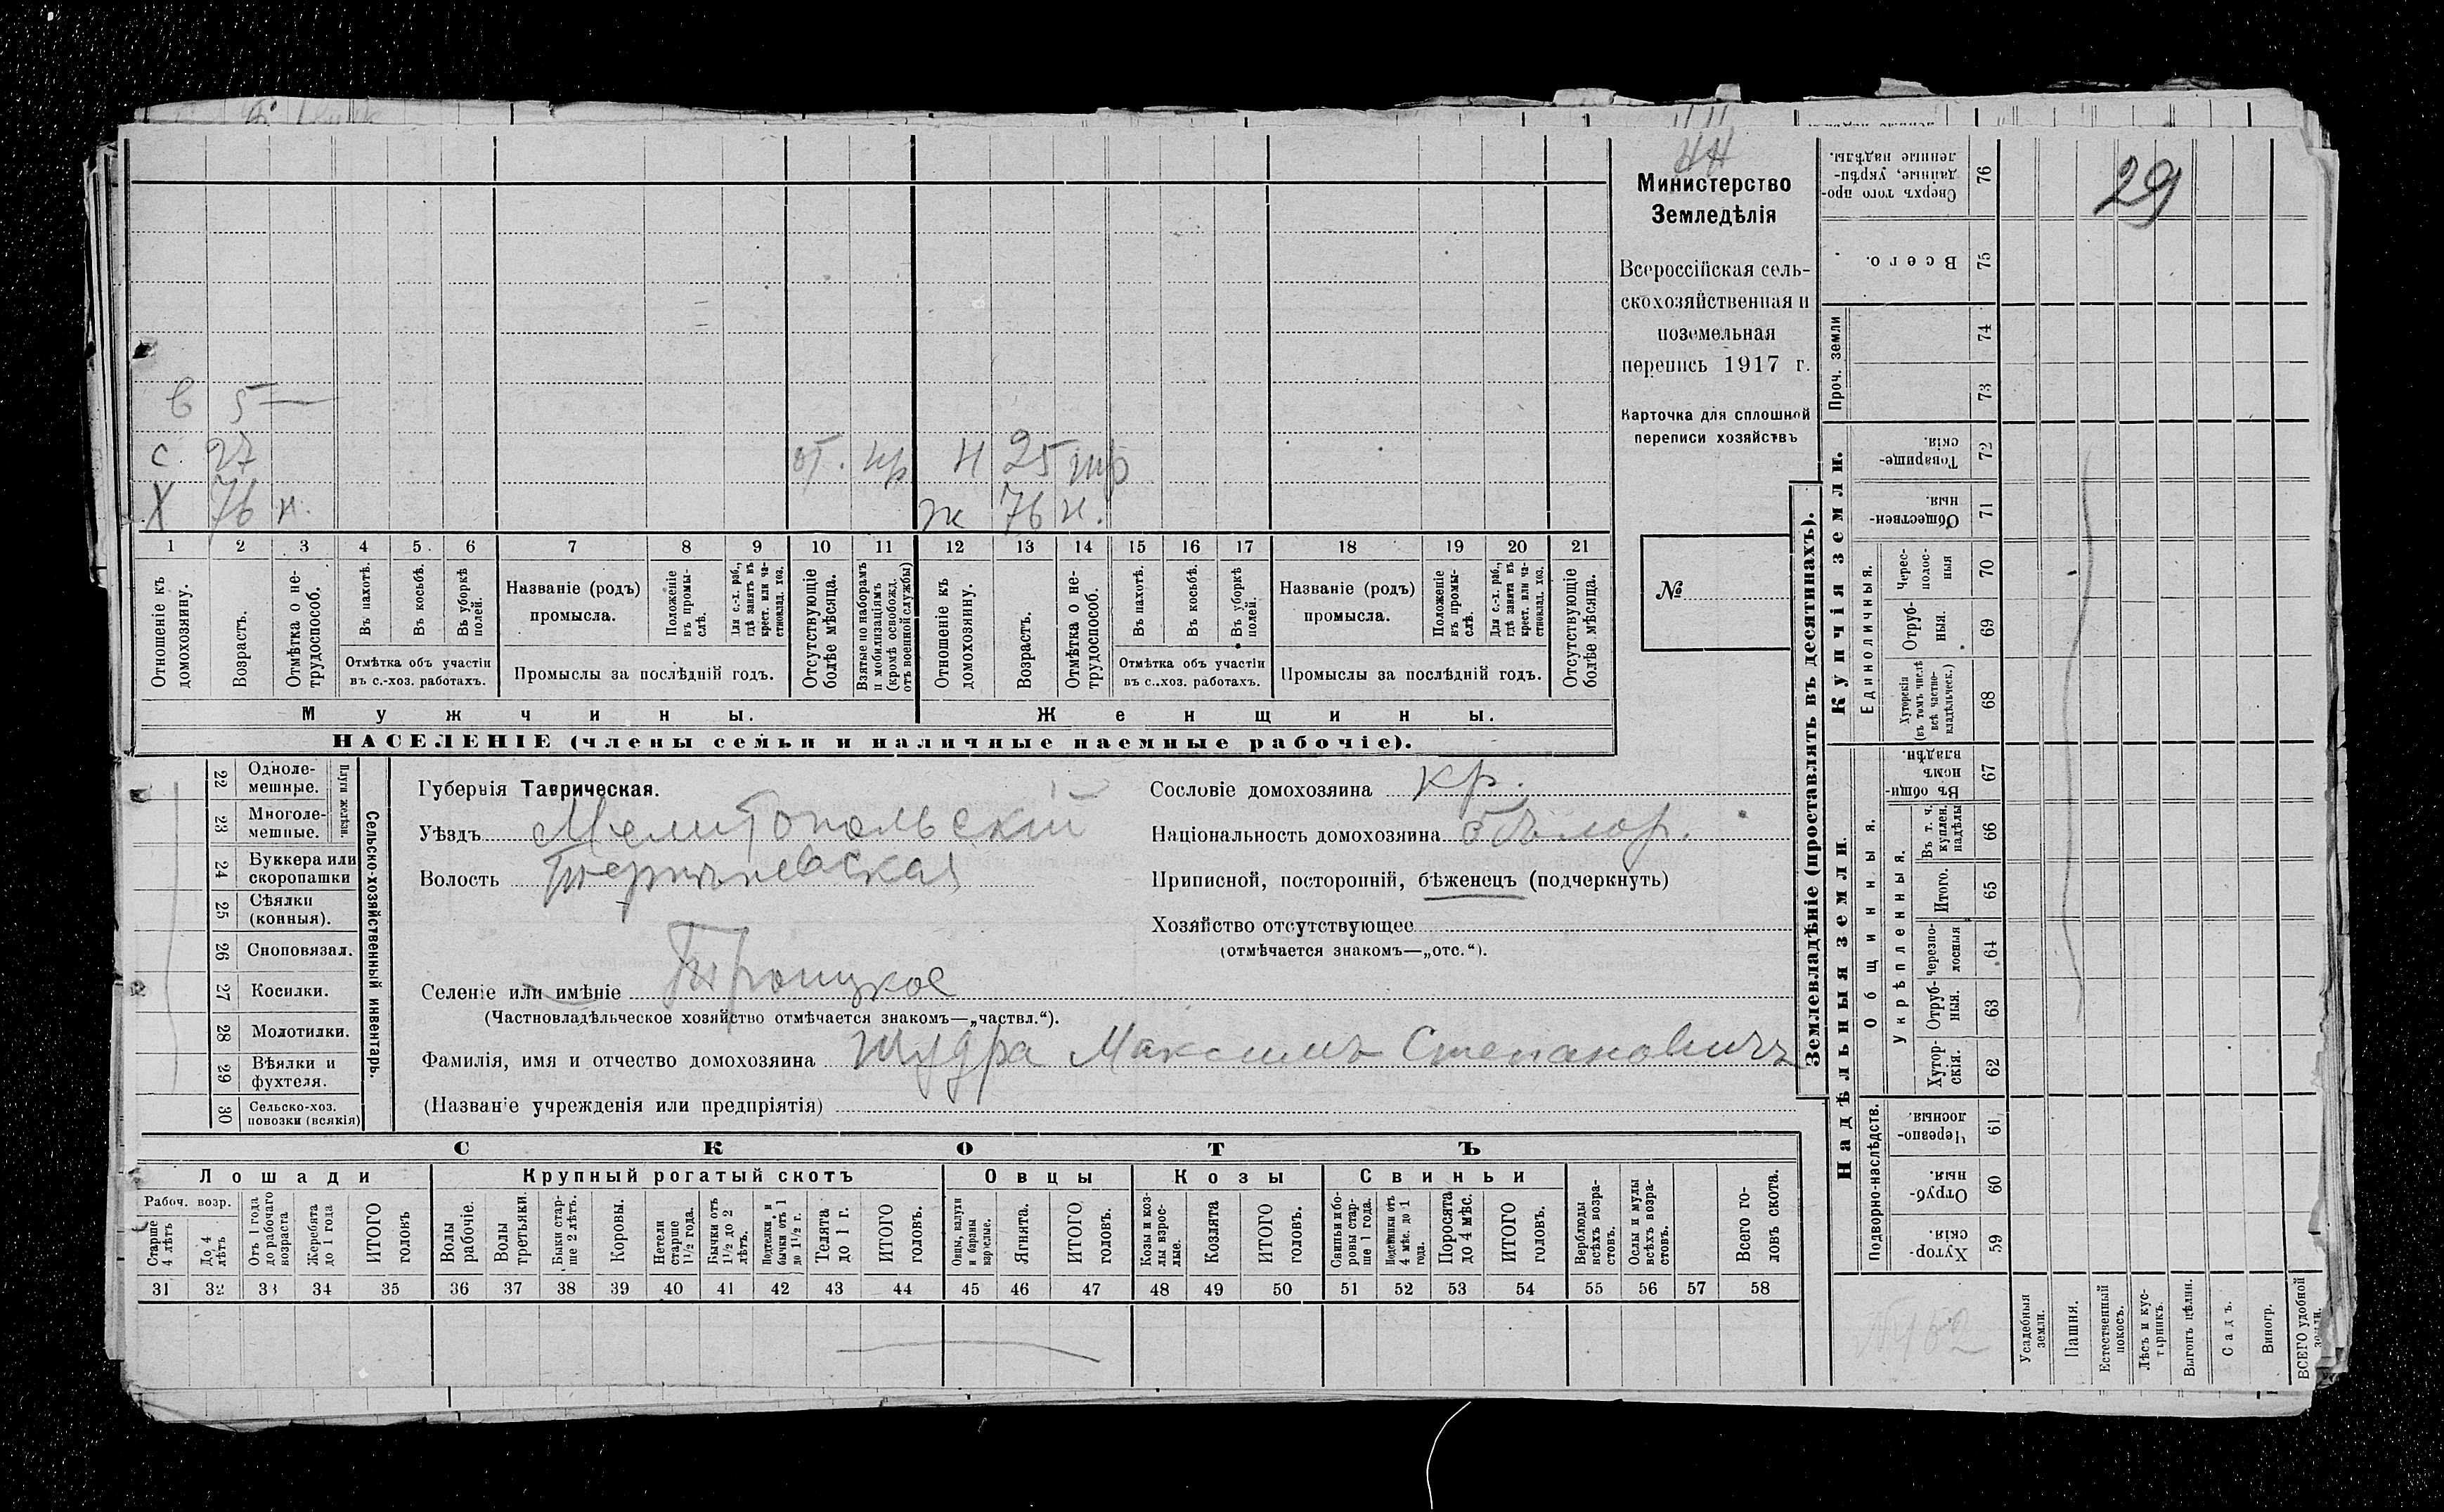 29
НН
Министерство
Земледѣлія
Всероссійская сель-
скохозяйственная и
поземельная
перепись 1917 г.
Карточка для сплошной
переписи хозяйствъ
№
в 5 —
с. 27 от. нр Н 25 тр
Х 76 н. ж 76 н.
1 2 3 4 5 6 7 8 9 10 11 12 13 14 15 16 17 18 19 20 21
Отношеніе къ домохозяину.
Возрастъ.
Отмѣтка о не-трудоспособ.
Въ пахотѣ.
Въ косьбѣ.
Въ уборкѣ полей.
Отмѣтка объ участіи
въ с.-хоз. работахъ.
Названіе (родъ)
промысла.
Положеніе въ промы-слѣ.
Для с.-х. раб., гдѣ занятъ въ крест. или ча-стновлад. хоз.
Промыслы за послѣдній годъ.
Отсутствующіе болѣе мѣсяца.
Взятые по наборамъ и мобилизаціямъ (кромѣ освобожд. отъ военной службы)
Отношеніе къ домохозяину.
Возрастъ.
Отмѣтка о не-трудоспособ.
Въ пахотѣ.
Въ косьбѣ.
Въ уборкѣ полей.
Отмѣтка объ участіи
въ с.-хоз. работахъ.
Названіе (родъ)
промысла.
Положеніе въ промы-слѣ.
Для с.-х. раб., гдѣ занята въ крест. или ча-стновлад. хоз.
Промыслы за послѣдній годъ.
Отсутствующіе болѣе мѣсяца.
Мужчины. Женщины.
НАСЕЛЕНІЕ (члены семьи и наличные наемные рабочіе).
22 Одноле-мешные.
23 Многоле-мешные.
Плуги желѣзн.
24 Буккера или скоропашки
25 Сѣялки (конныя).
26 Сноповязал.
27 Косилки.
28 Молотилки.
29 Вѣялки и фухтеля.
30 Сельско-хоз. повозки (всякія)
Сельско-хозяйственный инвентарь.
Губернія Таврическая.
Уѣздъ Мелитопольскій
Волость
Селеніе или имѣніе Троицкое
(Частновладѣльческое хозяйство отмѣчается знакомъ—„частвл.“).
Фамилія, имя и отчество домохозяина Шудра Максимъ Степановичъ
(Названіе учрежденія или предпріятія)
Сословіе домохозяина кр.
Національность домохозяина бѣлор.
Приписной, посторонній, бѣженецъ (подчеркнуть)
Хозяйство отсутствующее
(отмѣчается знакомъ—„отс.“).
СКОТЪ
Лошади Крупный рогатый скотъ Овцы Козы Свиньи
Рабоч. возр.
Старше 4 лѣтъ
До 4 лѣтъ
Отъ 1 года до рабочаго возраста
Жеребята до 1 года
ИТОГО головъ
Волы рабочіе.
Волы третьяки.
Быки стар-ше 2 лѣтъ.
Коровы.
Нетели старше 1½ года.
Бычки отъ 1½ до 2 лѣтъ.
Подтелки и бычки отъ 1 до 1½ г.
Телята до 1 г.
ИТОГО головъ.
Овцы, валухи и бараны взрослые.
Ягнята.
ИТОГО головъ.
Козы и коз-лы взрос-лые.
Козлята
ИТОГО головъ.
Свиньи и бо-ровы стар-ше 1 года.
Подсвинки отъ 4 мѣс. до 1 года.
Поросята до 4 мѣс.
ИТОГО головъ.
Верблюды всѣхъ возра-стовъ.
Ослы и мулы всѣхъ возра-стовъ.
Всего го-ловъ скота.
31 32 33 34 35 36 37 38 39 40 41 42 43 44 45 46 47 48 49 50 51 52 53 54 55 56 57 58
Землевладѣніе (проставлять въ десятинахъ).
Купчія земли.
Надѣльныя земли.
Проч. земли
Единоличныя.
Общинныя.
Укрѣпленныя.
Подворно-наслѣдств.
Сверхъ того про-данные, укрѣп-ленные надѣлы. 76
Всего. 75
74
73
Товарище-скія. 72
Обществен-ныя. 71
Черес-полос-ныя 70
Отруб-ныя. 69
Хуторскія (въ томъ числѣ всѣ частно-владѣльческ.) 68
Въ общин-номъ владѣн. 67
Въ т. ч. куплен. надѣлы 66
Итого. 65
Черезпо-лосныя 64
Отруб-ныя. 63
Хутор-скія. 62
Черезпо-лосныя. 61
Отруб-ныя. 60
Хутор-скія. 59
Усадебныя земли.
Пашня.
Естественный покосъ.
Лѣсъ и кус-тарникъ.
Выгонъ цѣлин.
Садъ.
Виногр.
ВСЕГО удобной земли.